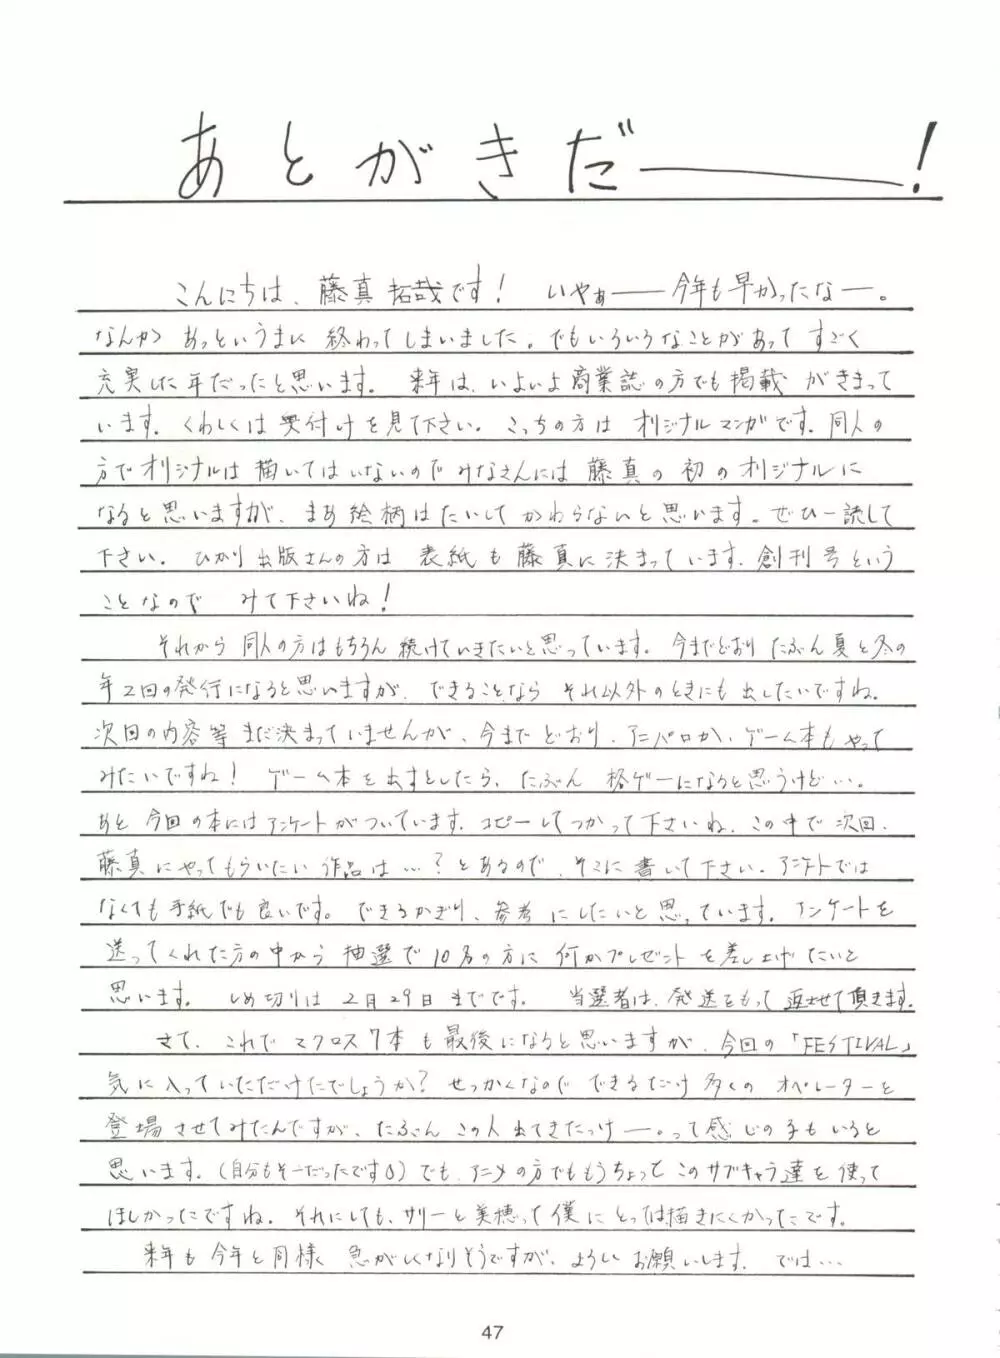 あとがきだー!
こんにちは、藤真拓哉です! いやぁー今年も早かったなー。
なんか あっというまに 終わってしまいました。でもいろいろなことがあって すごく
充実した年だったと思います。 来年は、いよいよ商業誌の方でも掲載 がきまって
います。くわしくは奥付けを見て下さい。こっちの方は オリジナルマンガです。同人の
方でオリジナルは描いてはいないのでみなさんには藤真の初のオリジナルに
なると思いますが、まあ絵柄はたいしてかわらないと思います。ぜひ一読して
下さい。ひかり出版さんの方は 表紙も藤真に決まっています。創刊号という
ことなので みて下さいね!
それから 同人の方はもちろん続けていきたいと思っています。今までどおり たぶん夏と冬の
年2回の発行になると思いますが、できることなら それ以外のときにも出したいですね。
次回の内容等まだ決まっていませんが、今まで どおり、アニパロか、ゲーム本もやって
みたいですね! ゲーム本を出すとしたら、たぶん 格ゲーになると思うけど…。
あと 今回の本にはアンケートがついています。コピーしてつかって下さいね。この中で次回、
藤真にやってもらいたい作品は…?とあるので、そこに書いて下さい。アンケートでは
なくても手紙でも良いです。できるかぎり、参考にしたいと思っています。アンケートを
送ってくれた方の中から 抽選で10名の方に 何かプレゼントを差し上げたいと
思います。 しめ切りは2月29日までです。 当選者は、発送をもって返させて頂きます。
さて、これでマクロス7本も最後になると思いますが、今回の「FESTIVAL」
気に入っていただけたでしょうか?せっかくなので できるだけ多くの オペレーターと
登場させてみたんですが、たぶん この人出てきたっけー。って感じの子もいると
思います。(自分もそーだったです)でも、アニメの方でももうちょっとこのサブキャラ達を使って
ほしかったですね。それにしても、サリーと美穂って僕にとっては描きにくかったです。
来年も今年と同様 急がしくなりそうですが、よろしくお願いします。 では…
47